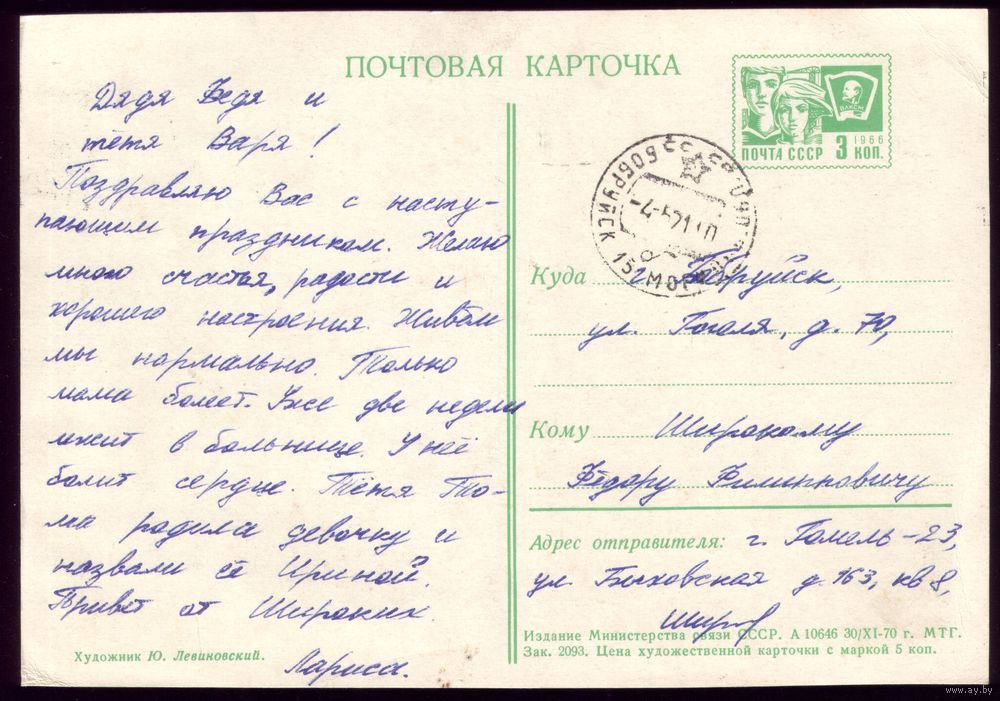 ПОЧТОВАЯ КАРТОЧКА
Дядя Федя и
тётя Варя!
Поздравляю Вас с насту-
пающим праздником. Желаю
много счастья, радости и
хорошего настроения. Живём
мы нормально. Только
мама болеет. Уже две недели
лежит в больнице. У неё
болит сердце. Тётя То-
ма родила девочку и
назвали её Ириной.
Привет от Широких.
Лариса.
Художник Ю. Левиновский.
ВЛКСМ
1966
ПОЧТА СССР 3 КОП.
БОБРУЙСК 15
Куда г. Бобруйск,
ул. Гоголя, д. 70,
Кому Широкому
Фёдору Филипповичу
Адрес отправителя: г. Гомель-23,
ул. Быховская д. 163, кв 8,
Издание Министерства связи СССР. А 10646 30/XI-70 г. МТГ.
Зак. 2093. Цена художественной карточки с маркой 5 коп.
www.ay.by